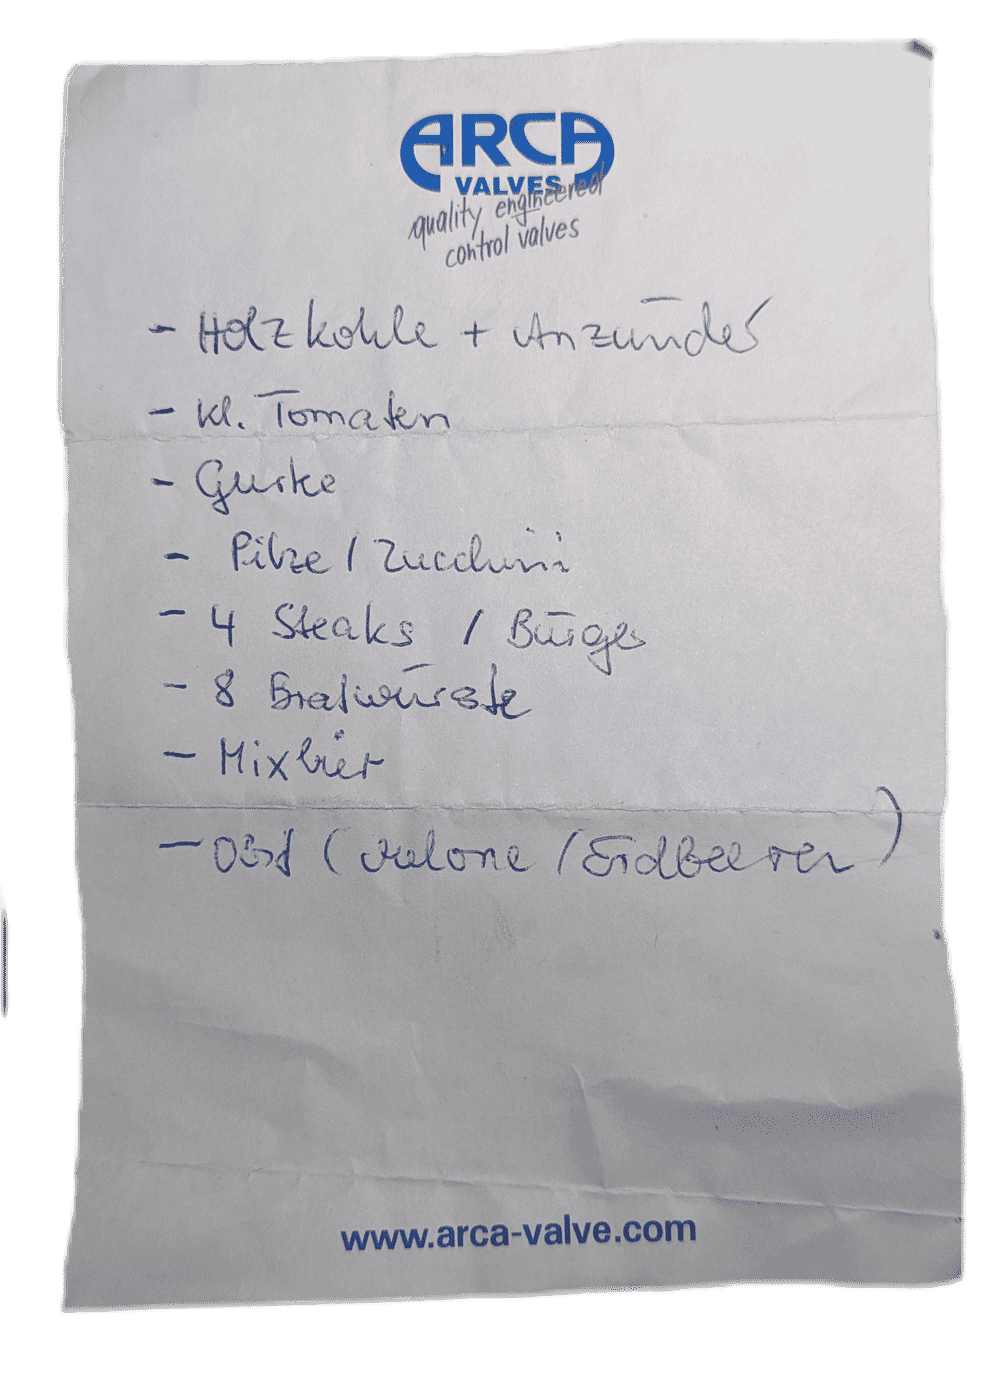 ARCA
VALVES
quality engineered
control valves
- Holzkohle + Anzünder
- kl. Tomaten
- Gurke
- Pilze / Zucchini
- 4 Steaks / Burger
- 8 Bratwürste
- Mixbier
- Obst (Melone / Erdbeeren)
www.arca-valve.com